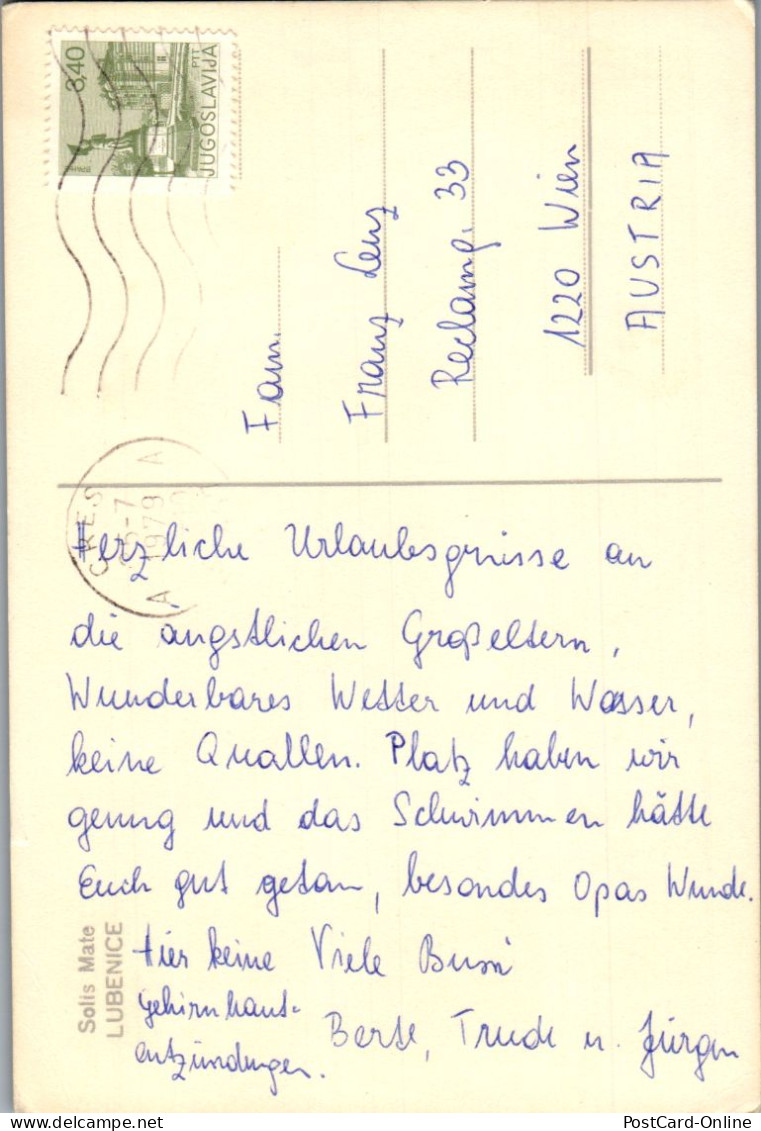 3,40
JUGOSLAVIJA
PTT
CRES
1979
A
A
Fam.
Franz Lenz
Reclamg. 33
1220 Wien
AUSTRIA
Herzliche Urlaubsgrüsse an
die ängstlichen Großeltern,
Wunderbares Wetter und Wasser,
keine Quallen. Platz haben wir
genug und das Schwimmen hätte
Euch gut getan, besondes Opas Wunde.
Hier keine
Gehirnhaut-
entzündungen.
Viele Bussi
Berte, Trude u. Jürgen
Solis Mate
LUBENICE
PostCard-Online